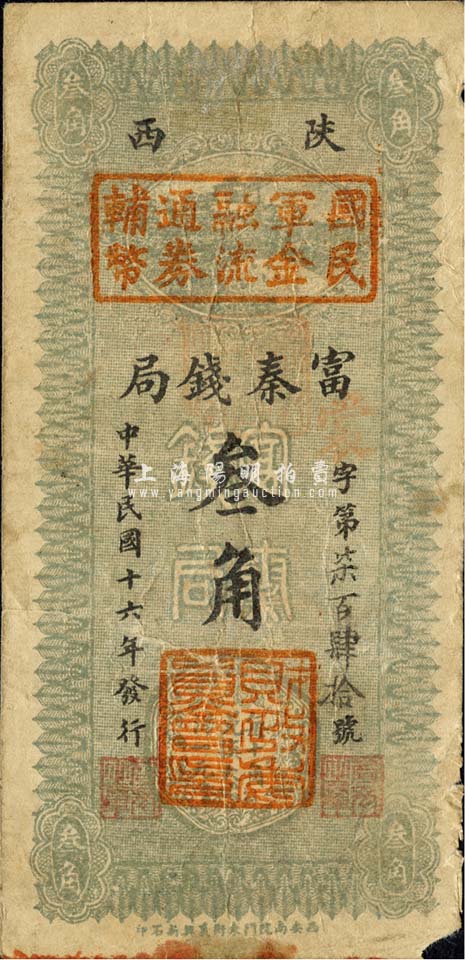 叁角
叁角
陕西
國民軍金融流通券輔幣
富秦錢局
叁角
字第柒百肆拾號
中華民國十六年發行
上海陽明拍賣
www.yangmingauction.com
富秦錢局
叁角
叁角
西安南院門東街藝興新石印